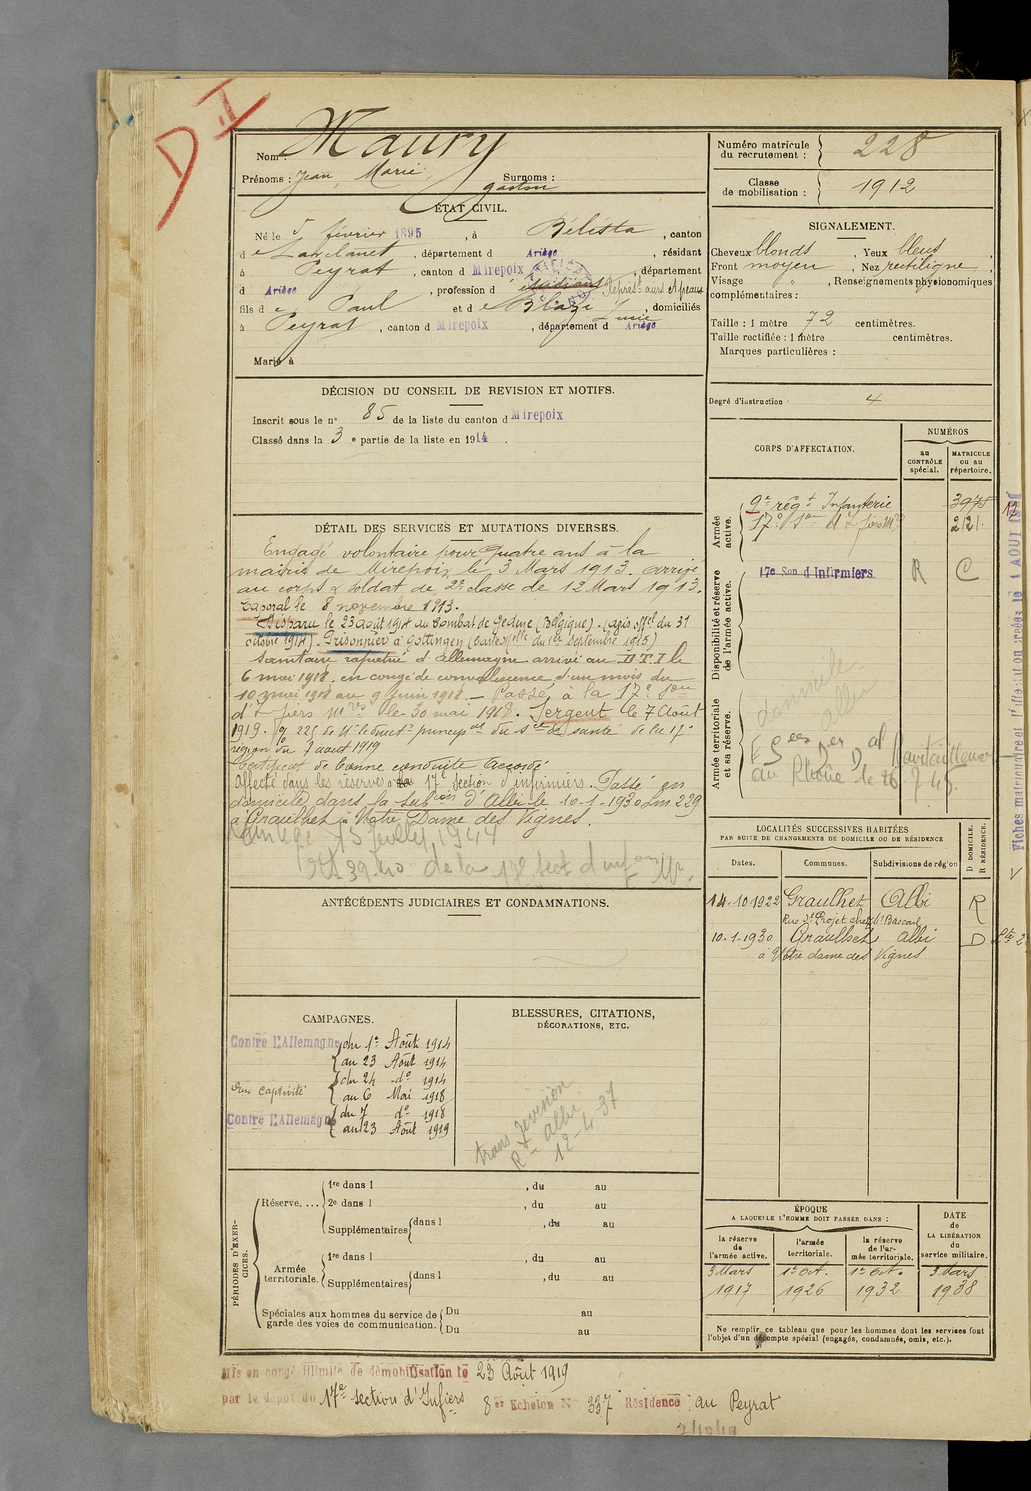 D I
Nom : Maury
Prénoms : Jean, Marie, Surnoms :
gaston
ÉTAT CIVIL.
Né le 5 février 1895, à Bélesta, canton
d e Lavelanet, département d Ariège, résidant
à Peyrat, canton d Mirepoix, département
d Ariège, profession d étudiant
fils d e Paul et d e Blazi Lucie, domiciliés
à Peyrat, canton d Mirepoix, département d Ariège
Marié à
DÉCISION DU CONSEIL DE REVISION ET MOTIFS.
Inscrit sous le n° 85 de la liste du canton d Mirepoix
Classé dans la 3 e partie de la liste en 1914.
DÉTAIL DES SERVICES ET MUTATIONS DIVERSES.
Engagé volontaire pour quatre ans à la
mairie de Mirepoix le 3 Mars 1913. Arrivé
au corps & soldat de 2e classe de 12 Mars 1913.
Caporal le 8 novembre 1913.
Disparu le 23 août 1914 au Combat de Gedinne (Belgique). (avis offel du 31
octobre 1914). Prisonnier à Göttingen (Carte du 1er Septembre 1915)
Sanitaire rapatrié d'allemagne arrivé au D.T.I le
6 mai 1918, en congé de convalescence d'un mois du
10 mai 1918 au 9 juin 1918. — Passé à la 17e Son
d'Infiers Mres le 30 mai 1918. Sergent le 7 Août
1919. 225 de Mr le Directr principal du Sce de santé de la 17e
région du 7 août 1919
Certificat de bonne conduite Accordé
Affecté dans les réserves à la 17e Section d'infirmiers. Passé en
domicile dans la Subon d'Albi le 10-1-1930 Lm 229
à Graulhet à Notre Dame des Vignes.
15 Juillet 1944
39.40 de la 17e sect d'inf
ANTÉCÉDENTS JUDICIAIRES ET CONDAMNATIONS.
CAMPAGNES.
Contre l'Allemagne du 1er Août 1914
au 23 Août 1914
En Captivité du 24 do 1914
au 6 Mai 1918
Contre l'Allemagne du 7 do 1918
au 23 Août 1919
BLESSURES, CITATIONS,
DÉCORATIONS, ETC.
trans revision
Rt albi
12-4-37
PÉRIODES D'EXERCICES.
Réserve.... 1re dans l , du au
2e dans l , du au
Supplémentaires dans l , du au
Armée territoriale. 1re dans l , du au
Supplémentaires dans l , du au
Spéciales aux hommes du service de garde des voies de communication. Du au
Du au
Mis en congé illimité de démobilisation le 23 Août 1919
par le dépôt du 17e section d'Infiers 8er Echelon N° 337 Résidence : au Peyrat
Numéro matricule
du recrutement : 228
Classe
de mobilisation : 1912
SIGNALEMENT.
Cheveux blonds, Yeux bleus,
Front moyen, Nez rectiligne,
Visage " , Renseignements physionomiques
complémentaires :
Taille : 1 mètre 72 centimètres.
Taille rectifiée : 1 mètre centimètres.
Marques particulières :
Degré d'instruction : 4
CORPS D'AFFECTATION.
NUMÉROS
au CONTRÔLE spécial.
MATRICULE ou au répertoire.
Armée active.
9e régt Infanterie 3975
17e Son d'Infiers Mres 2121
Disponibilité et réserve de l'armée active.
17e Son d'Infirmiers R C
Armée territoriale et sa réserve.
domicile
albi
Ravitaillemt
du Rhône le 26.7.45.
LOCALITÉS SUCCESSIVES HABITÉES
PAR SUITE DE CHANGEMENTS DE DOMICILE OU DE RÉSIDENCE
D DOMICILE.
R RÉSIDENCE.
Dates. Communes. Subdivisions de région
14-10-1922 Graulhet Albi R
Rue St Projet chez Mr Bascoul
10-1-1930 Graulhet Albi D
à Notre dame des Vignes
ÉPOQUE
A LAQUELLE L'HOMME DOIT PASSER DANS :
DATE
de
LA LIBÉRATION
du
service militaire.
la réserve de l'armée active.
l'armée territoriale.
la réserve de l'armée territoriale.
3 Mars 1er Oct. 1er Oct. 3 Mars
1917 1926 1932 1938
Ne remplir ce tableau que pour les hommes dont les services font
l'objet d'un décompte spécial (engagés, condamnés, omis, etc.).